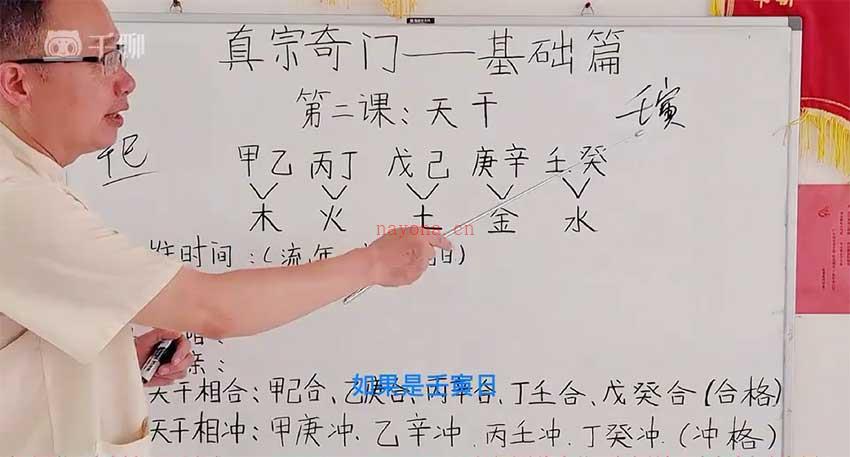 千聊
真宗奇门——基础篇
第二课：天干
壬寅
甲乙 丙丁 戊己 庚辛 壬癸
木 火 土 金 水
nayona.cn
时间：(流年
日)
亲：
如果是壬寅日
天干相合：甲己合、乙庚合、丙辛合、丁壬合、戊癸合(合格)
天干相冲：甲庚冲、乙辛冲、丙壬冲、丁癸冲、(冲格)